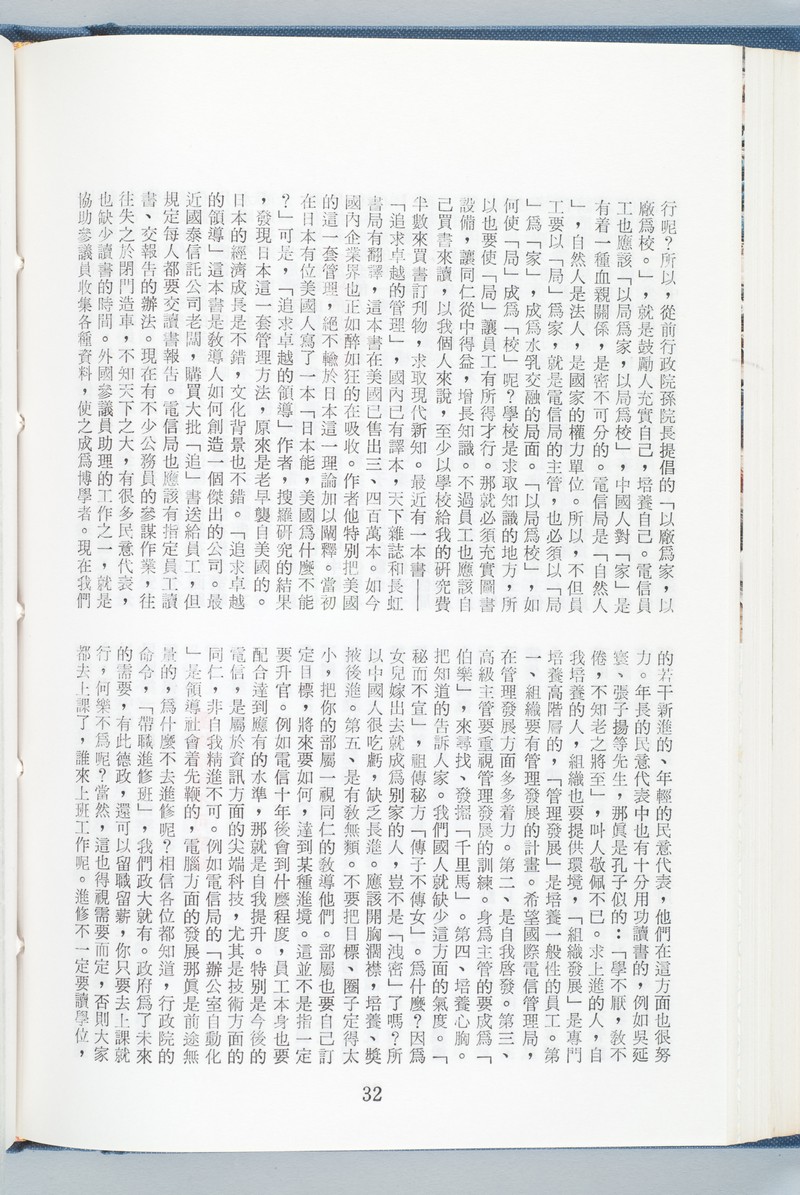 行呢?所以,從前行政院孫院長提倡的「以廠爲家,以
廠爲校。」,就是鼓勵人充實自己,培養自己。電信員
工也應該「以局爲家,以局爲校」,中國人對「家」是
有着一種血親關係,是密不可分的。電信局是「自然人
」,自然人是法人,是國家的權力單位。所以,不但員
工要以「局」爲家,就是電信局的主管,也必須以「局
」爲「家」,成爲水乳交融的局面。「以局爲校」,如
何使「局」成爲「校」呢?學校是求取知識的地方,所
以也要使「局」讓員工有所得才行。那就必須充實圖書
設備,讓同仁從中得益,增長知識。不過員工也應該自
己買書來讀,以我個人來說,至少以學校給我的硏究費
半數來買書訂刊物,求取現代新知。最近有一本書——
「追求卓越的管理」,國內已有譯本,天下雜誌和長虹
書局有翻譯,這本書在美國已售出三、四百萬本。如今
國內企業界也正如醉如狂的在吸收。作者他特別把美國
的這一套管理,絕不輸於日本這一理論加以闡釋。當初
在日本有位美國人寫了一本「日本能,美國爲什麼不能
?」可是,「追求卓越的領導」作者,搜羅硏究的結果
,發現日本這一套管理方法,原來是老早襲自美國的。
日本的經濟成長是不錯,文化背景也不錯。「追求卓越
的領導」這本書是敎導人如何創造一個傑出的公司。最
近國泰信託公司老闆,購買大批「追」書送給員工,但
規定每人都要交讀書報告。電信局也應該有指定員工讀
書、交報告的辦法。現在有不少公務員的參謀作業,往
往失之於閉門造車,不知天下之大,有很多民意代表,
也缺少讀書的時間。外國參議員助理的工作之一,就是
協助參議員收集各種資料,使之成爲博學者。現在我們
的若干新進的、年輕的民意代表,他們在這方面也很努
力。年長的民意代表中也有十分用功讀書的,例如吳延
寰、張子揚等先生,那眞是孔子似的:「學不厭,敎不
倦,不知老之將至」,叫人敬佩不已。求上進的人,自
我培養的人,組織也要提供環境,「組織發展」是專門
培養高階層的,「管理發展」是培養一般性的員工。第
一、組織要有管理發展的計畫。希望國際電信管理局,
在管理發展方面多多着力。第二、是自我啓發。第三、
高級主管要重視管理發展的訓練。身爲主管的要成爲「
伯樂」,來尋找、發掘「千里馬」。第四、培養心胸。
把知道的告訴人家。我們國人就缺少這方面的氣度。「
秘而不宣」,祖傳秘方「傳子不傳女」。爲什麼?因爲
女兒嫁出去就成爲別家的人,豈不是「洩密」了嗎?所
以中國人很吃虧,缺乏長進。應該開胸濶襟,培養、獎
掖後進。第五、是有敎無類。不要把目標、圈子定得太
小,把你的部屬一視同仁的敎導他們。部屬也要自己訂
定目標,將來要如何,達到某種進境。這並不是指一定
要升官。例如電信十年後會到什麼程度,員工本身也要
配合達到應有的水準,那就是自我提升。特別是今後的
電信,是屬於資訊方面的尖端科技,尤其是技術方面的
同仁,非自我精進不可。例如電信局的「辦公室自動化
」是領導社會着先鞭的,電腦方面的發展那眞是前途無
量的,爲什麼不去進修呢?相信各位都知道,行政院的
命令,「帶職進修班」,我們政大就有。政府爲了未來
的需要,有此德政,還可以留職留薪,你只要去上課就
行,何樂不爲呢?當然,這也得視需要而定,否則大家
都去上課了,誰來上班工作呢。進修不一定要讀學位,
32